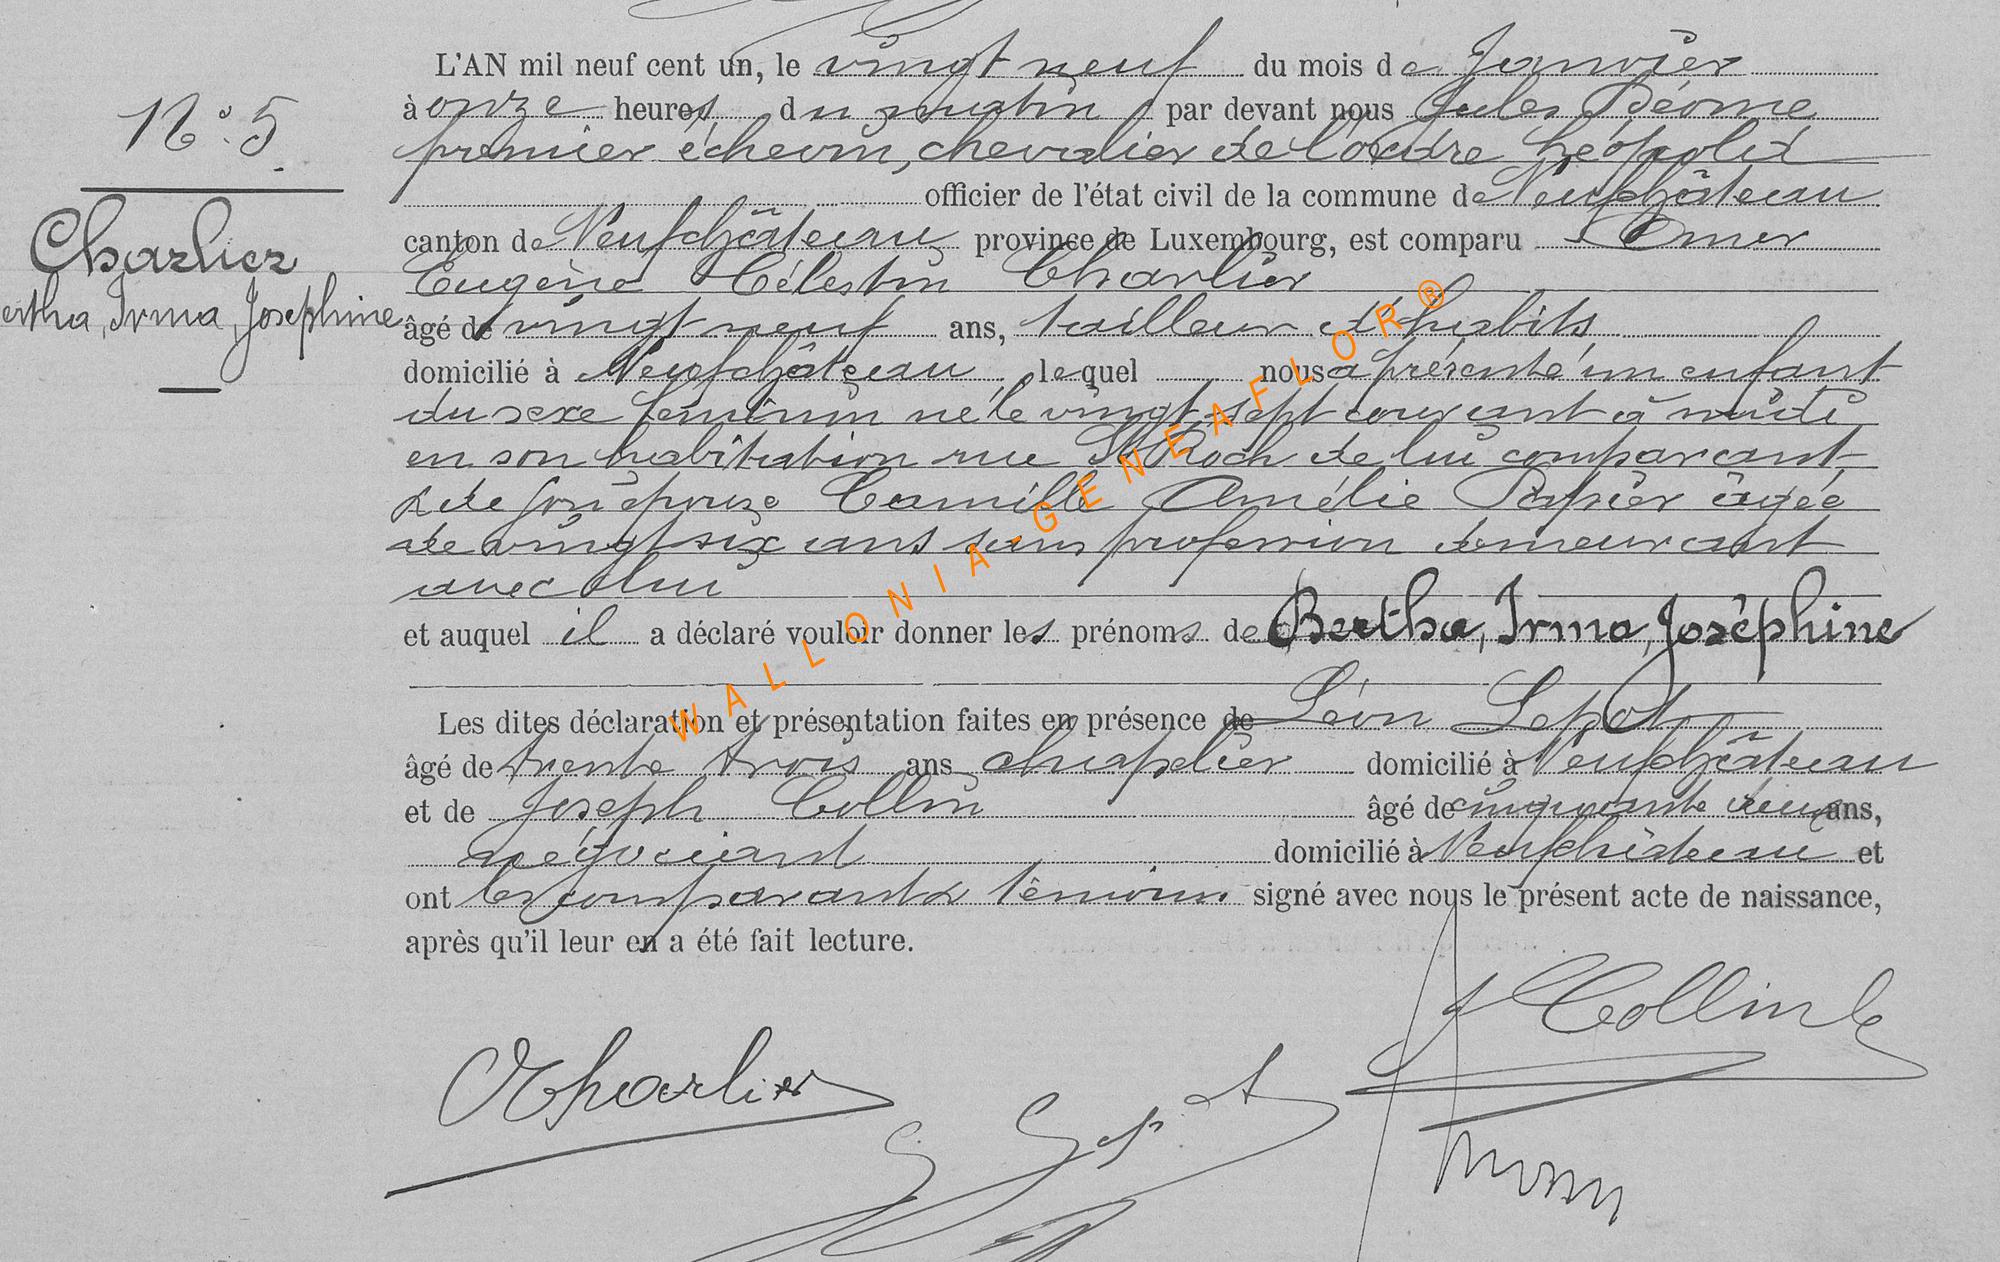 N° 5
Charlier
ertha, Irma, Joséphine
L'AN mil neuf cent un, le vingt neuf du mois de Janvier
à onze heures du matin par devant nous Jules
premier échevin, chevalier de l'ordre Léopold
officier de l'état civil de la commune de Neufchâteau
canton de Neufchâteau province de Luxembourg, est comparu Omer
Eugène Célestin Charlier
âgé de vingt neuf ans, tailleur d'habits
domicilié à Neufchâteau lequel nous a présenté un enfant
du sexe féminin né le vingt sept courant à midi
en son habitation rue St Roch de lui comparant
& de son épouze Camille Amélie Papier âgée
de vingt six ans sans profession demeurant
avec lui
et auquel il a déclaré vouloir donner les prénoms de Bertha, Irma, Joséphine
Les dites déclaration et présentation faites en présence de Léon Lepot
âgé de trente trois ans chapelier domicilié à Neufchâteau
et de Joseph Collin âgé de cinquante deux ans,
négociant domicilié à Neufchâteau et
ont les comparant & témoins signé avec nous le présent acte de naissance,
après qu'il leur en a été fait lecture.
J Collin
O Charlier
L Lepot
WALLONIA-GENEAFLOR®